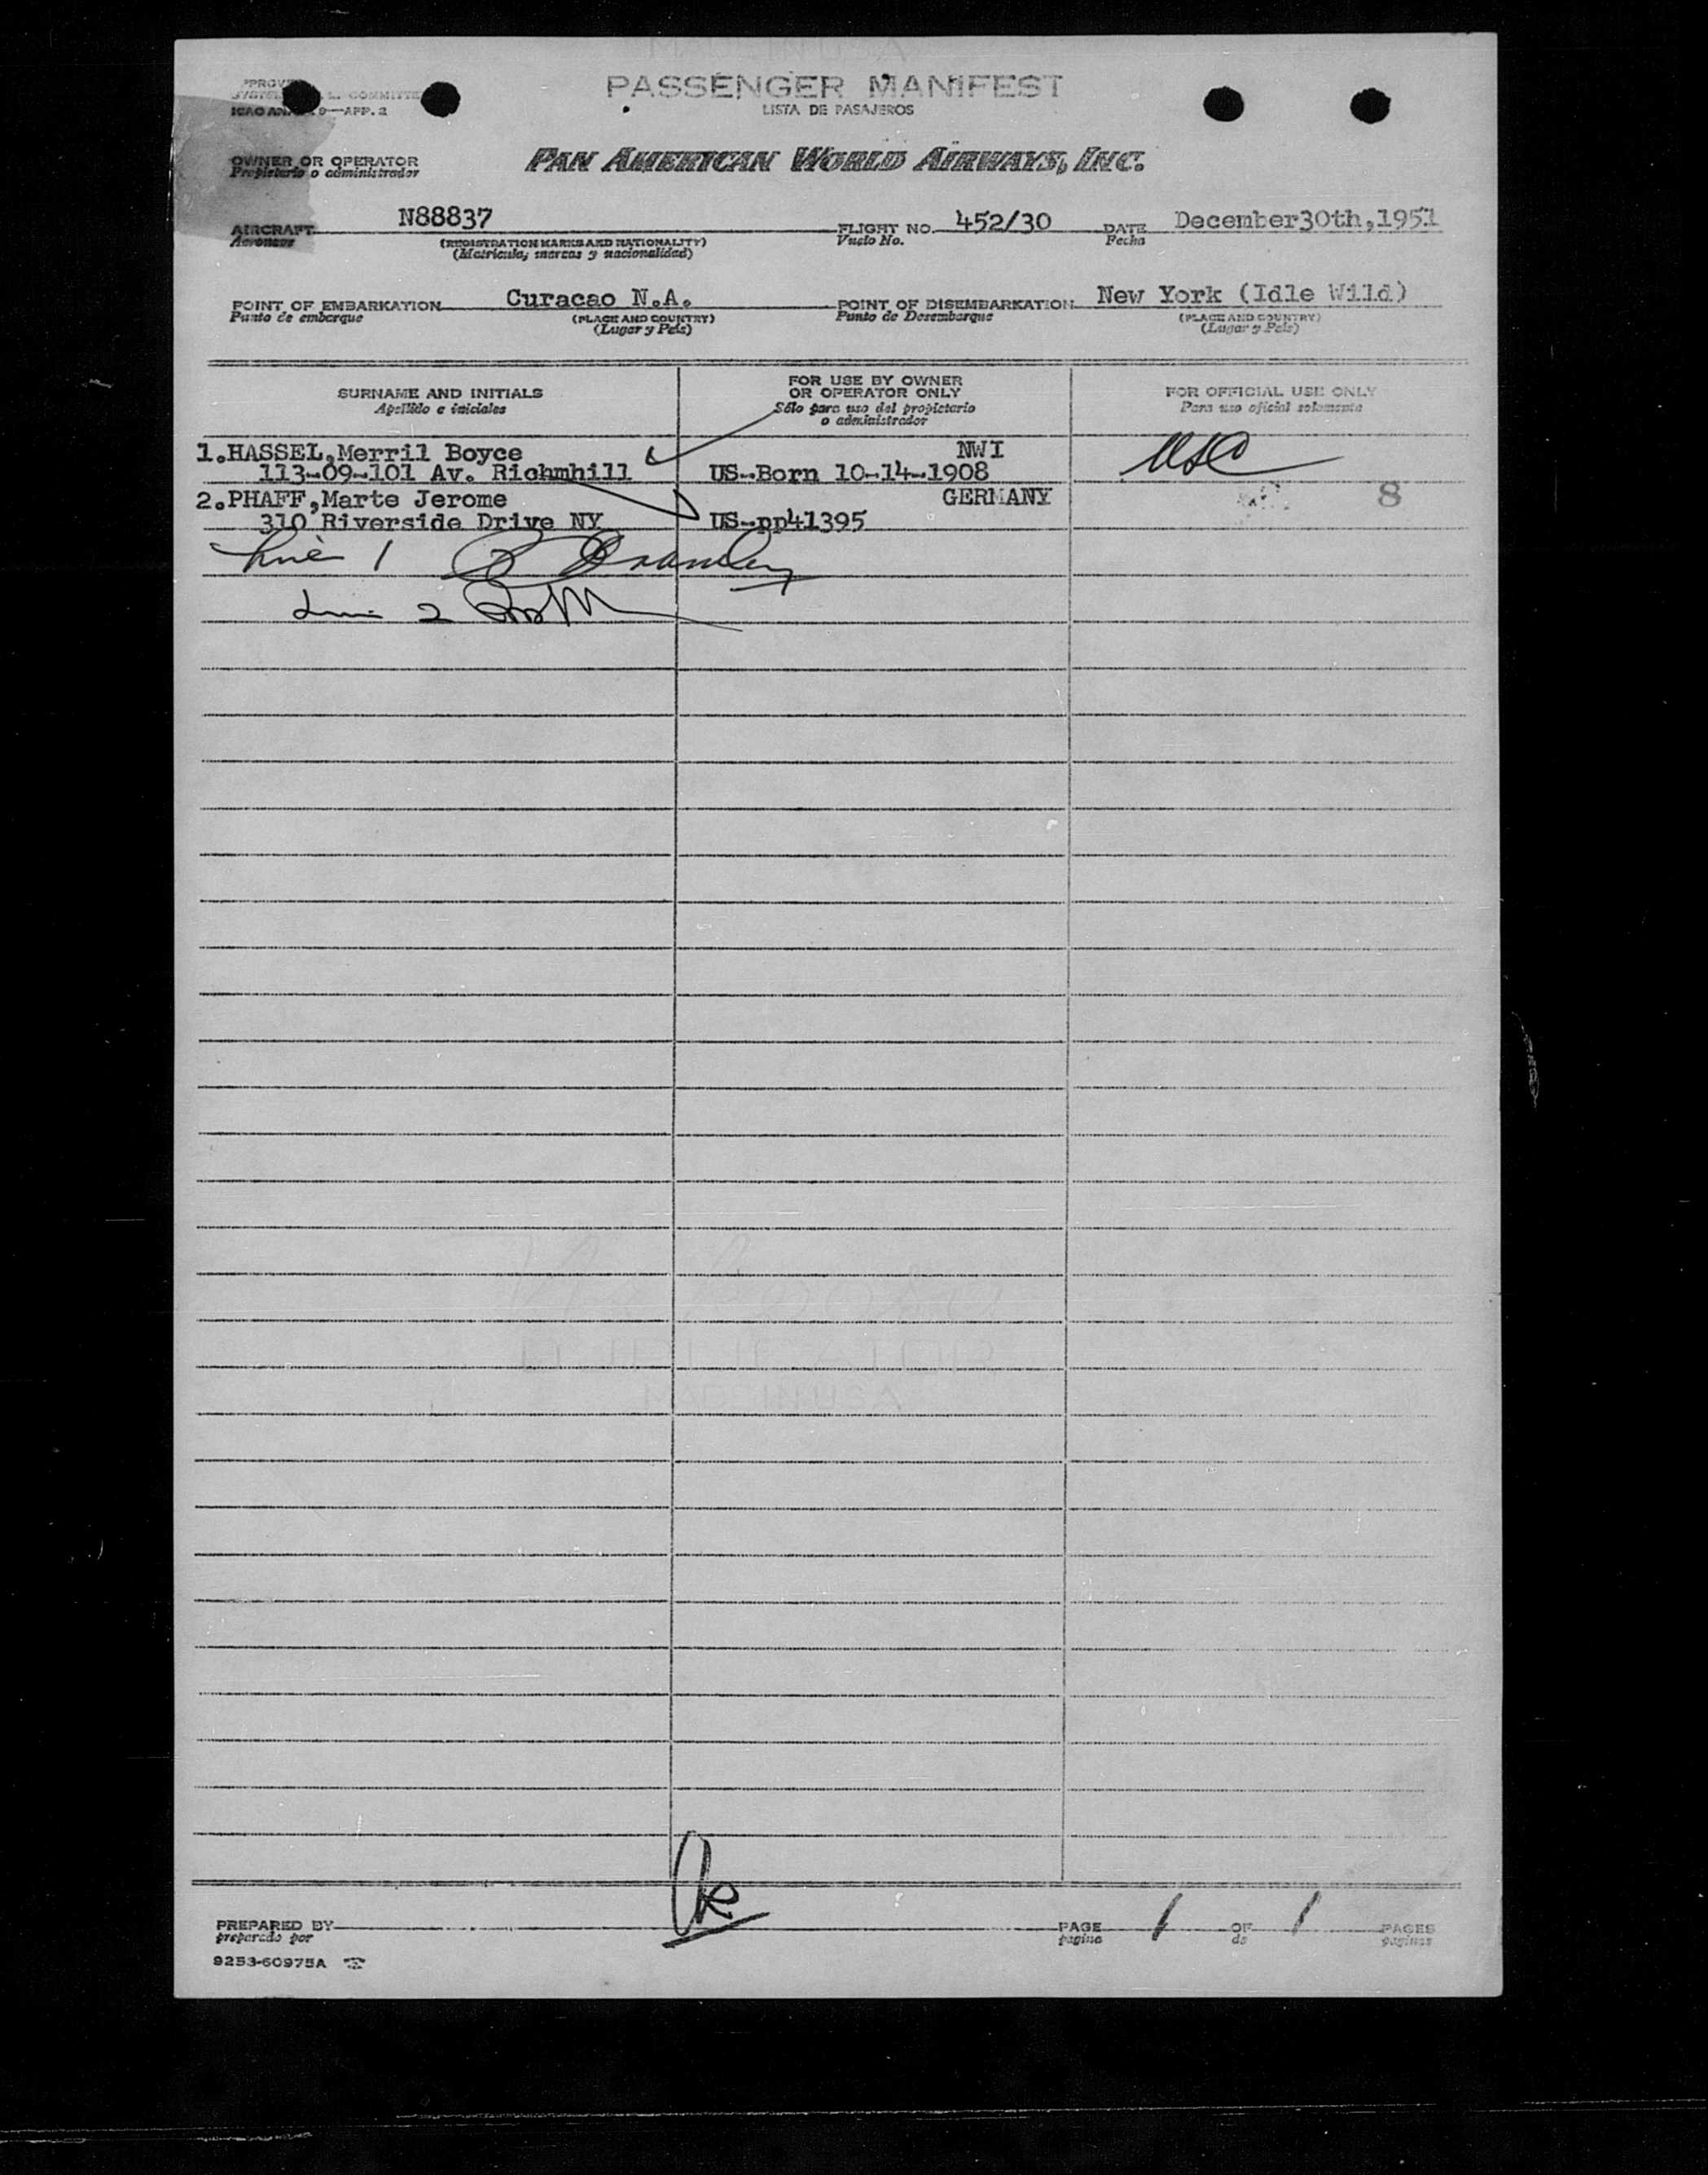 PASSENGER MANIFEST
LISTA DE PASAJEROS
ICAO 9—APP. 2
OWNER OR OPERATOR
Propietario o administrador
PAN AMERICAN WORLD AIRWAYS, INC.
AIRCRAFT N88837 FLIGHT NO. 452/30 DATE December30th,1951
Aeronave (REGISTRATION MARKS AND NATIONALITY) Vuelo No. Fecha
(Matrícula, marcas y nacionalidad)
POINT OF EMBARKATION Curacao N.A. POINT OF DISEMBARKATION New York (Idle Wild)
Punto de embarque (PLACE AND COUNTRY) Punto de Desembarque (PLACE AND COUNTRY)
(Lugar y País) (Lugar y País)
SURNAME AND INITIALS
Apellido e iniciales
FOR USE BY OWNER
OR OPERATOR ONLY
Sólo para uso del propietario
o administrador
FOR OFFICIAL USE ONLY
Para uso oficial solamente
1.HASSEL,Merril Boyce NWI USC
113-09-101 Av. Richmhill US-Born 10-14-1908
2.PHAFF,Marte Jerome GERMANY 8
310 Riverside Drive NY US-pp41395
Line 1
Line 2
Ok
PREPARED BY PAGE 1 OF 1 PAGES
preparado por página de páginas
9253-60975A